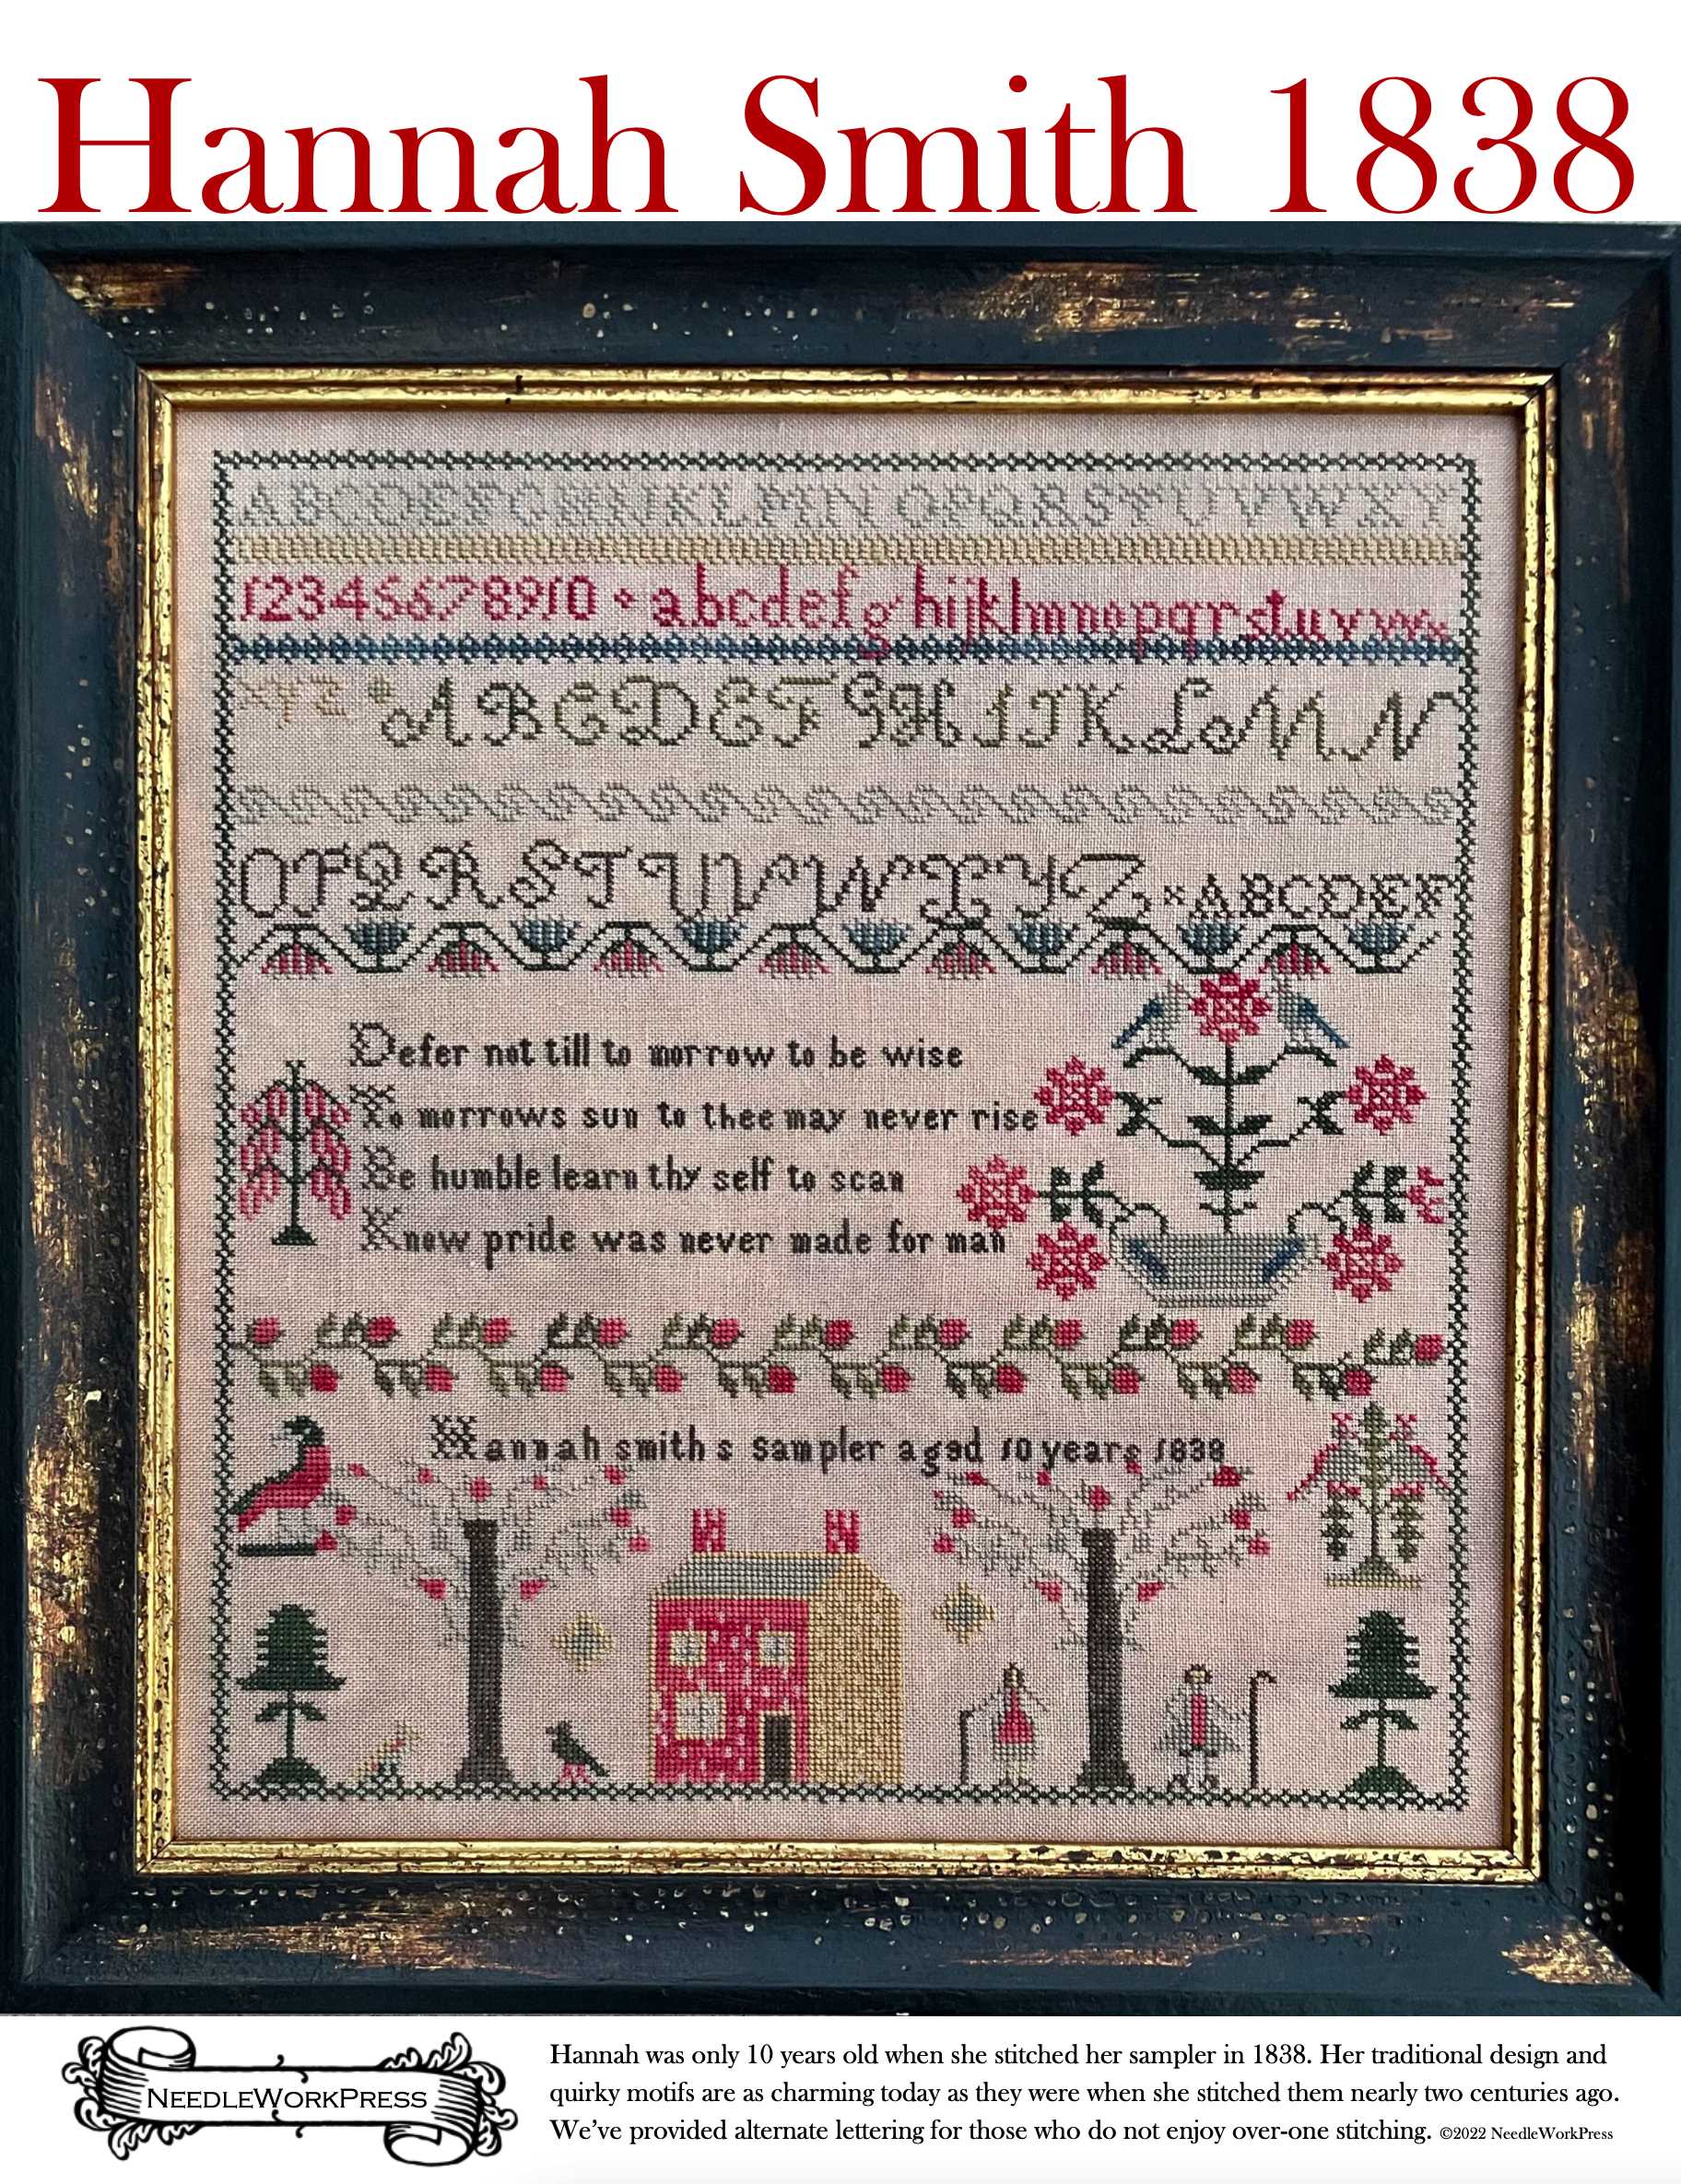 Hannah Smith 1838
ABCDEFGHIJKLMN OPQRSTUVWXY
12345678910 abcdefghijklmnopqrstuvw
xyz ABCDEFGHIJKLMN
OPQRSTUVWXYZ ABCDEF
Defer not till to morrow to be wise
To morrows sun to thee may never rise
Be humble learn thy self to scan
Know pride was never made for man
Hannah smith s sampler aged 10 years 1838
NEEDLEWORKPRESS
Hannah was only 10 years old when she stitched her sampler in 1838. Her traditional design and
quirky motifs are as charming today as they were when she stitched them nearly two centuries ago.
We've provided alternate lettering for those who do not enjoy over-one stitching. ©2022 NeedleWorkPress